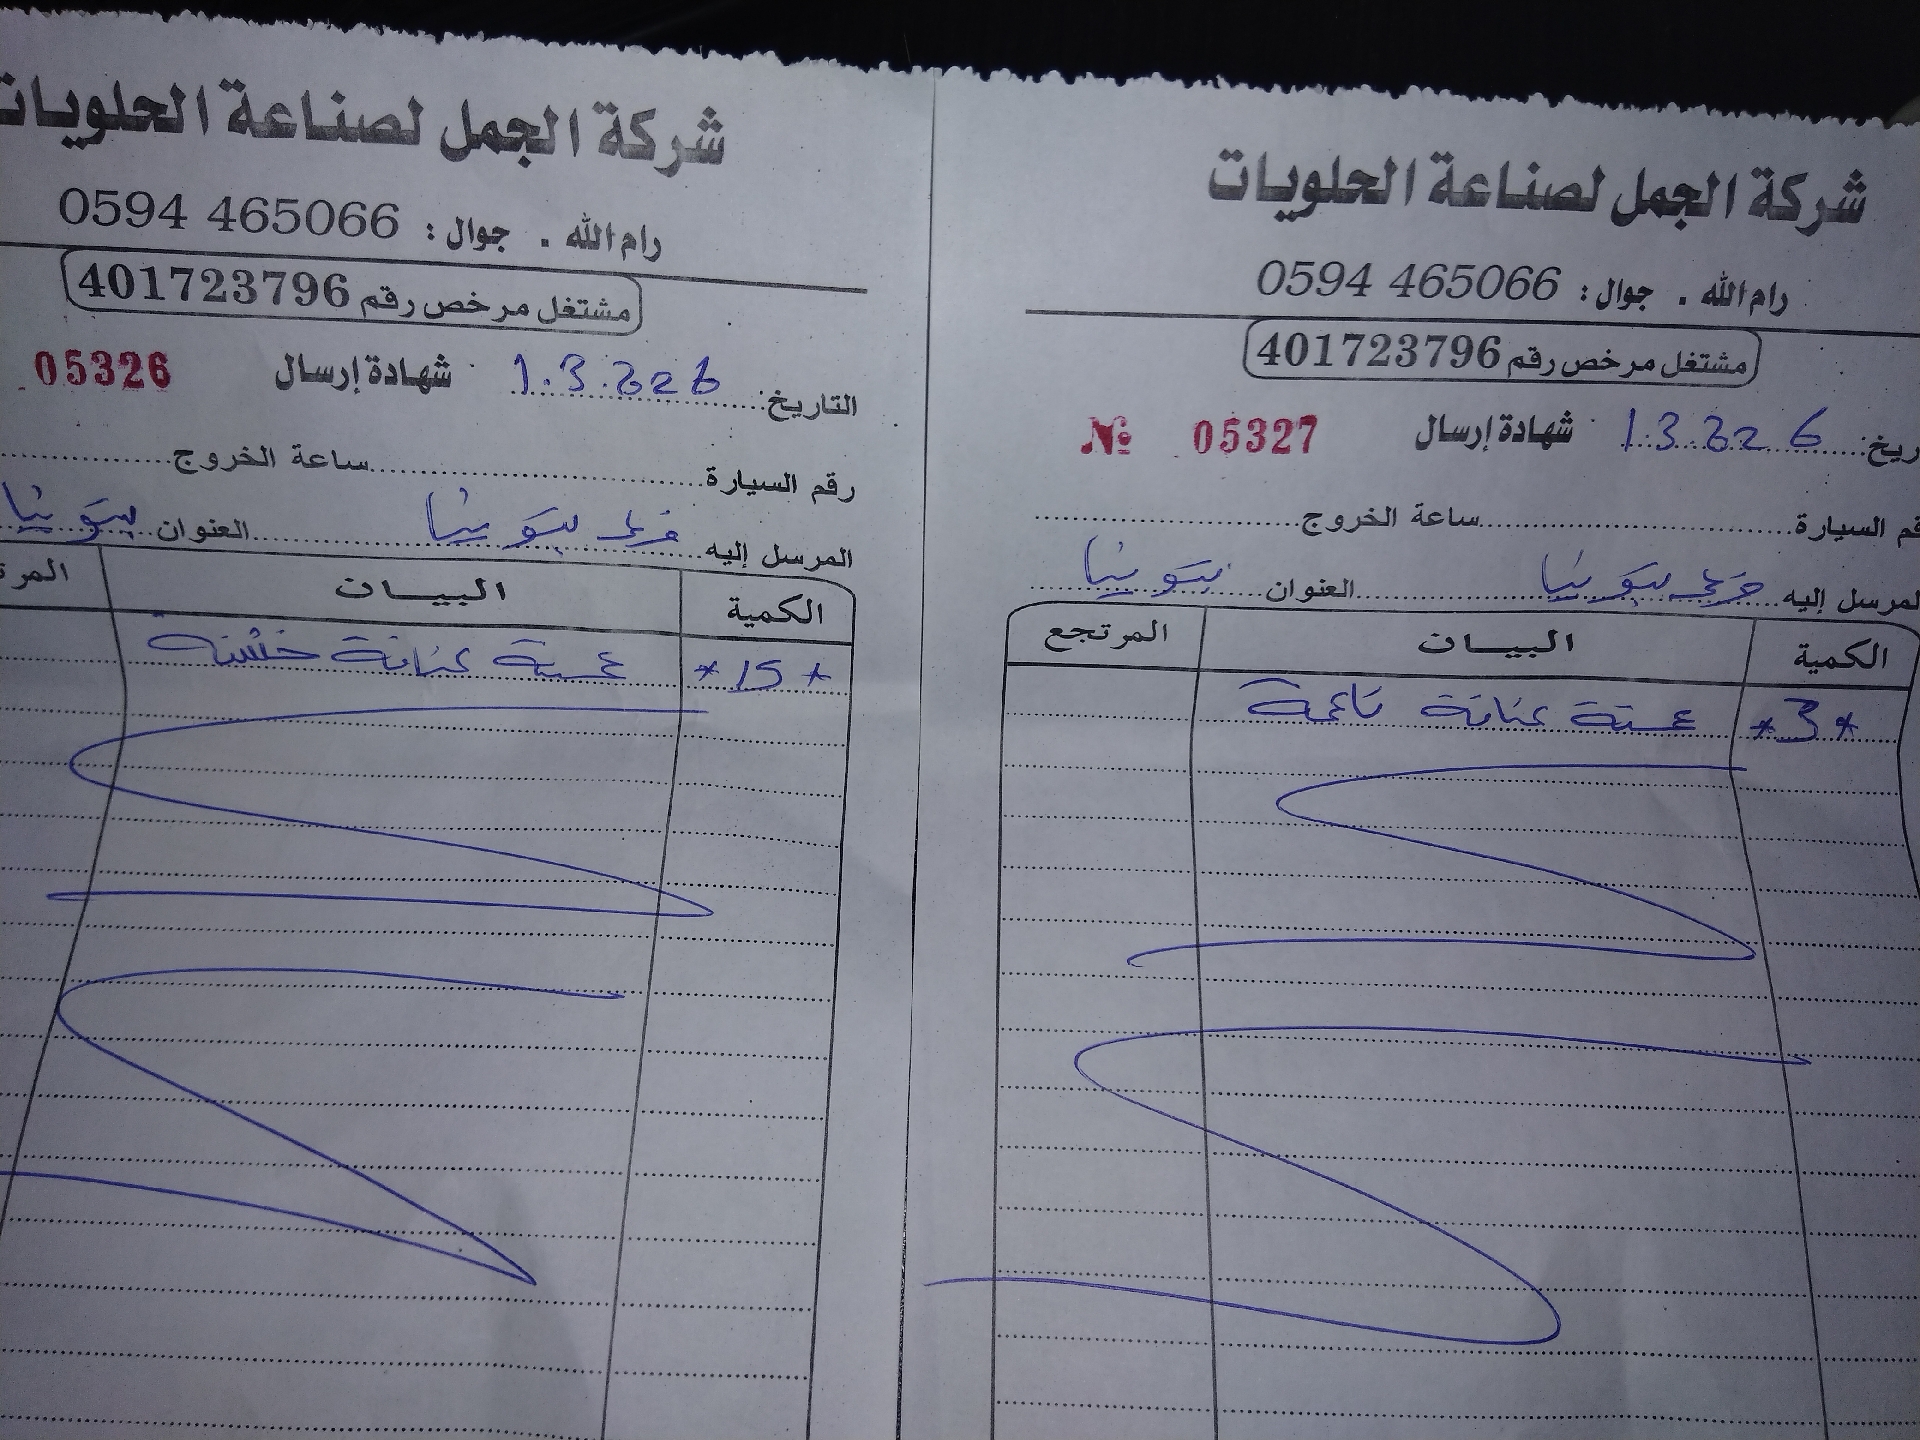 شركة الجمل لصناعة الحلويات
رام الله . جوال : 0594 465066
مشتغل مرخص رقم 401723796
التاريخ: 1.3.2026 شهادة إرسال 05327 №
رقم السيارة ساعة الخروج
المرسل إليه العنوان
الكمية البيان المرتجع
*3* ناعمة
شركة الجمل لصناعة الحلويات
رام الله . جوال : 0594 465066
مشتغل مرخص رقم 401723796
التاريخ: 1.3.2026 شهادة إرسال 05326
رقم السيارة ساعة الخروج
المرسل إليه العنوان
الكمية البيان
*15* خشنة